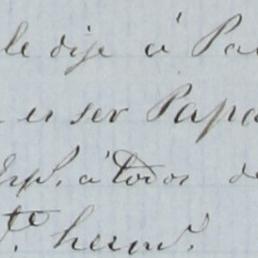 le dije á Pa
es ser Papa
Esp. á todos de
te. herm.